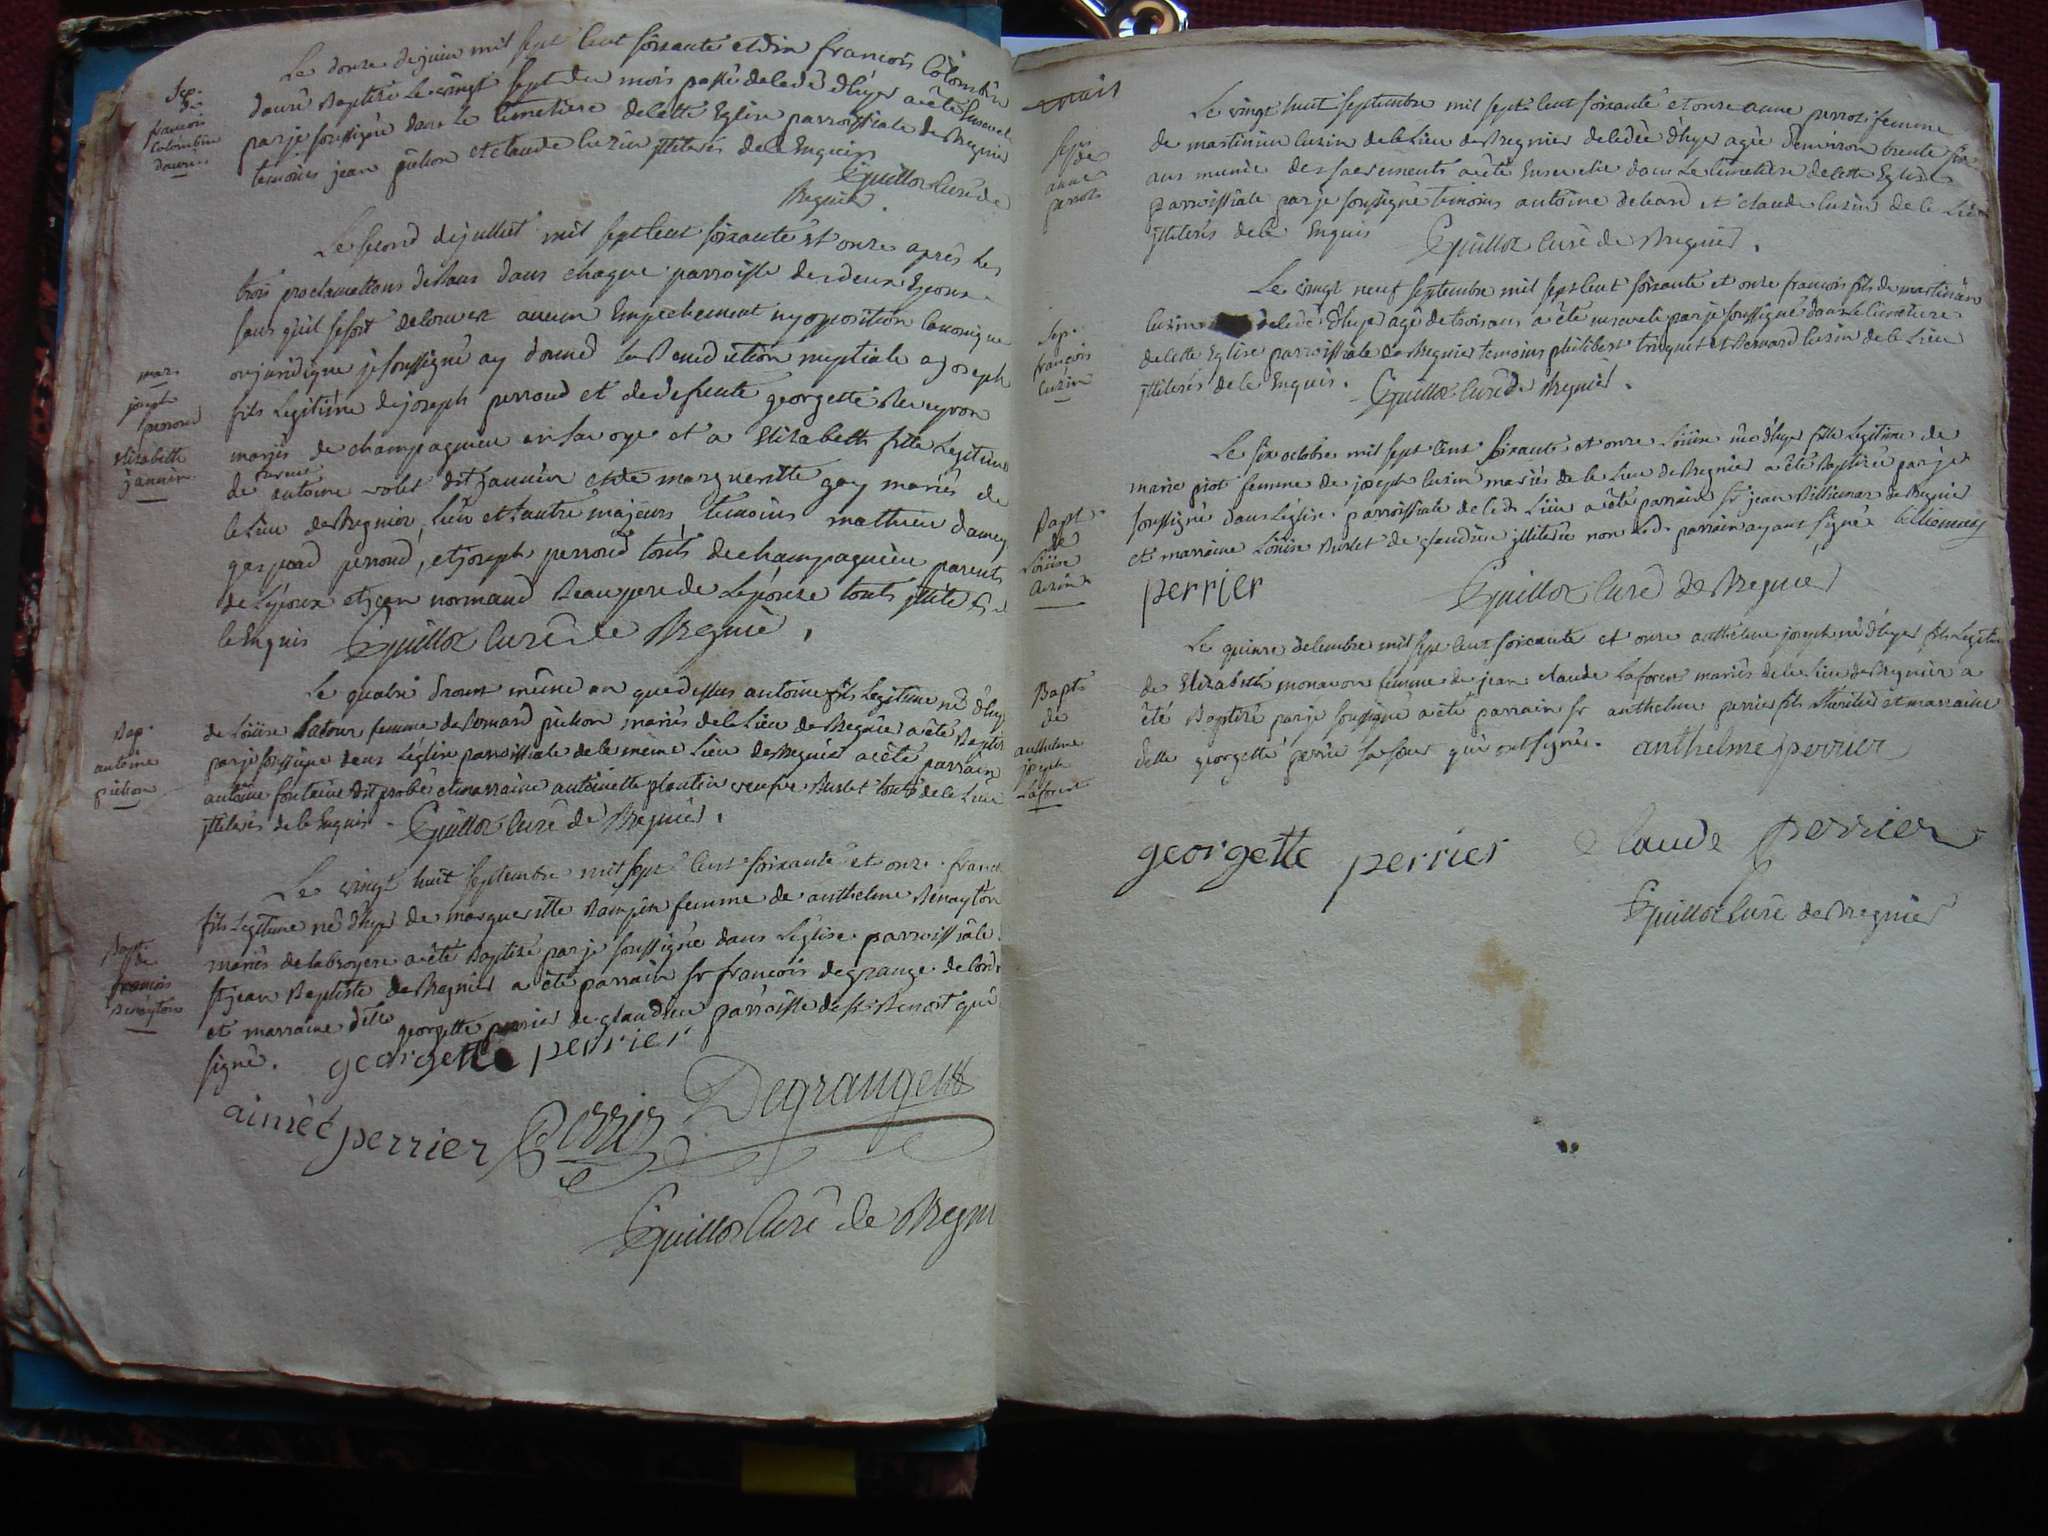 Sep.
de
francois
Colombin
douvre
Le douze de juin mil sept cent soixante et dix francois Colombin
douvre Baptisé le vingt sept du mois passé decedé d'hyer a été Ensevel
par je soussigné dans le cimetiere de cette Eglise parroissiale de Regnie
temoins jean pichon et claude cuzin illiterés de ce Enquis
Guillot curé de
Regnier.
mar.
joseph
perroud
elizabeth
jannin
Le second de juillet mil sept cent soixante et onze après les
trois proclamations dans chaque parroisse des deux Epoux
sans qu'il se soit decouvert aucun Empechement ny opposition canonique
ou juridique je soussigné ay donné la Benediction nuptiale a joseph
fils Legitime de joseph perroud et de defunte georgette Reveyron
mariés de champagnieu en savoye et a Elizabeth fille Legitime
de antoine volet dit jannin et de marguerite gay mariés de
ce Lieu de Regnier, l'un et l'autre majeurs, temoins mathieu
gaspard perroud, et joseph perroud touts de champagnieu parents
de l'époux et jean normand Beaupere de L'épouse touts illiterés
de ce Enquis Guillot curé de Regnie.
Bap.
antoine
pichon
Le quatre d'aoust même an que dessus antoine fils Legitime né d'hyer
de Loüise Latour femme de Bernard pichon mariés de ce Lieu de Regnier a été Baptis
par je soussigné dans L'église parroissiale de ce même Lieu de Regnier a été parrain
antoine fontaine dit probé et marraine antoinette plantin veufve Burlet touts de ce Lieu
illiterés de ce Enquis. Guillot curé de Regnier.
Bapt.
de
francois
Benayton
Le vingt huit septembre mil sept cent soixante et onze francois
fils Legitime né d'hyer de marguerite Rampin femme de anthelme Benayton
mariés de labroyere a été Baptisé par je soussigné dans L'église parroissiale
st jean Baptiste de Regnier a été parrain sr francois degrange de Cordon
et marraine delle georgette perrier de glandieu parroisse de st Benoit qui
signé. georgette perrier
aimée perrier Perrier Degrange
Guillot Curé de Regni
Sep.
de
anne
perrot
Le vingt huit septembre mil sept cent soixante et onze anne perrot femme
de martinien cuzin de ce Lieu de Regnier decedée d'hyer agée d'environ trente six
ans munie des sacrements a été Ensevelie dans le cimetiere de cette Eglise
parroissiale par je soussigné temoins antoine debard et claude cuzin de ce Lieu
illiterés de ce Enquis Guillot curé de Regnier.
Sep.
francois
Cuzin
Le vingt neuf septembre mil sept cent soixante et onze francois fils de martinien
cuzin decedé d'hyer agé de trois ans a été enseveli par je soussigné dans le cimetiere
de cette Eglise parroissiale de Regnier temoins philibert triquet et Bernard cuzin de ce Lieu
illiterés de ce Enquis. Guillot curé de Regnier.
Bapt.
de
Loüise
Cuzin
Le six octobre mil sept cent soixante et onze Loüise née d'hyer fille Legitime de
marie piot femme de joseph cuzin mariés de ce Lieu de Regnier a été Baptisée par je
soussigné dans L'église parroissiale de ced. Lieu a été parrain sr jean Billiemaz de Regnier
et marraine Loüise Burlet de glandieu illiterée non led. parrain ayant signé billiemaz
perrier Guillot Curé de Regnier
Bapt.
de
anthelme
joseph
Laforest
Le quinze decembre mil sept cent soixante et onze anthelme joseph né d'hyer fils Legitime
de Elizabeth monavon femme de jean claude Laforest mariés de ce Lieu de Regnier a
été Baptisé par je soussigné a été parrain sr anthelme perrier fils et marraine
delle georgette perrie sa sœur qui ont signé. anthelme perrier
georgette perrier claude perrier
Guillot curé de Regnier